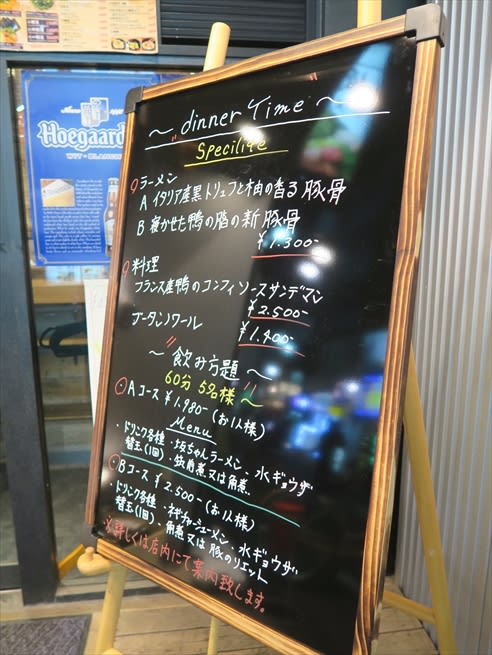 Hoegaard
~ dinner Time ~
Specilite
ラーメン
A イタリア産黒トリュフと柚の香る豚骨
B 寝かせた鴨の脂の新豚骨
¥1.300-
料理
フランス産鴨のコンフィソースサンデマン
¥2.500-
ブータンノワール
¥1.400-
~ 飲み方題 ~
60分 5名様~
Aコース ¥1.980-(お1人様)
Menu
・ドリンク各種・坂ちゃんラーメン、水ギョウザ
替玉(1回)・筑前煮又は角煮
Bコース ¥2.500-(お1人様)
・ドリンク各種・ネギチャーシューメン、水ギョウザ
替玉(1回)、角煮又は豚のリエット
※詳しくは店内にて案内致します。